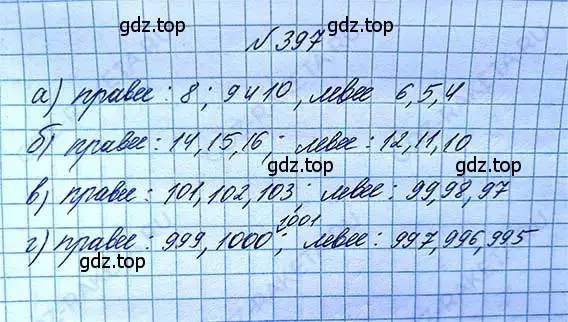 gdz.top gdz.top
№ 397
а) правее: 8; 9 и 10, левее 6, 5, 4
gdz.top
б) правее: 14, 15, 16; левее: 12, 11, 10
gdz.top gdz.top
в) правее: 101, 102, 103; левее: 99, 98, 97
gdz.top
1001
г) правее: 999, 1000; левее: 997, 996, 995
gdz.top